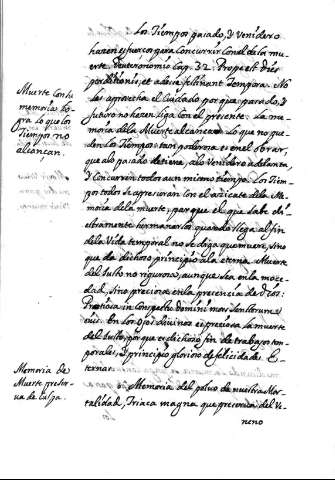 Los Tiempos pasado, y Venidero
hazen esfuerzos para Concurrir Con el de la mu
erte. Deuteronomio Cap. 32. Prope est dies
perditionis, et adesse festinant tempora. No
las aprovecha el Cuidado porque pasado, y
futuro no hazen liga con el presente. La me
moria de la Muerte alcanza Lo que no que
den Los Tiempos: tan poderosa es en el obrar,
que a lo pasado detiene, a lo Venidero adelanta,
y Concurren todos a un mismo tiempo. Los Tiem
pos todos se apresuran con el azicate de la Me
moria de la muerte, para que el que sabe di
estramente hermanarlos, quando llega al fin
de la Vida temporal no se diga que muere, sino
que da dichoso principio a la eterna. Muerte
del Justo no rigurosa, aunque sea en la moce
dad, sino preciosa en la presencia de Dios:
Pretiosa in Conspectu domini mors Sanctorum
eius. En los Ojos divinos es preciosa la muerte
del Justo, porque es dichoso fin de trabajos tem
porales, y principio glorioso de felicidades E-
ternas.
Memoria del polvo de nuestra Mor-
talidad, Triaca magna que preserva del Ve-
neno
Muerte Con su
memoria lo-
gra lo que los
Tiempos no
alcanzan.
Memoria de
Muerte preser-
va de Culpa.